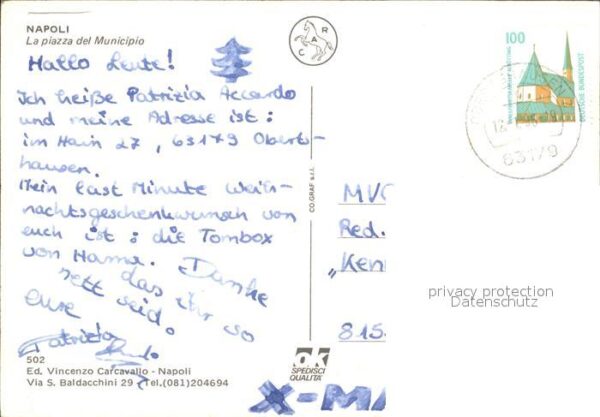 NAPOLI
La piazza del Municipio
Hallo Leute!
Ich heiße Patrizia Accardo
und meine Adresse ist:
im Hain 27, 63179 Oberts-
hausen.
Mein last Minute Weih-
nachtsgeschenkwunsch von
euch ist: die Tombox
von Hama. Danke
das ihr so
nett seid.
eure
Patrizia
502
Ed. Vincenzo Carcavallo - Napoli
Via S. Baldacchini 29 - Tel.(081)204694
CAR
CO.GRAF s.r.l.
ok
SPEDISCI
QUALITA'
100
DEUTSCHE BUNDESPOST
63179
MVG
Red.
„Ken
815
X-MA
privacy protection
Datenschutz